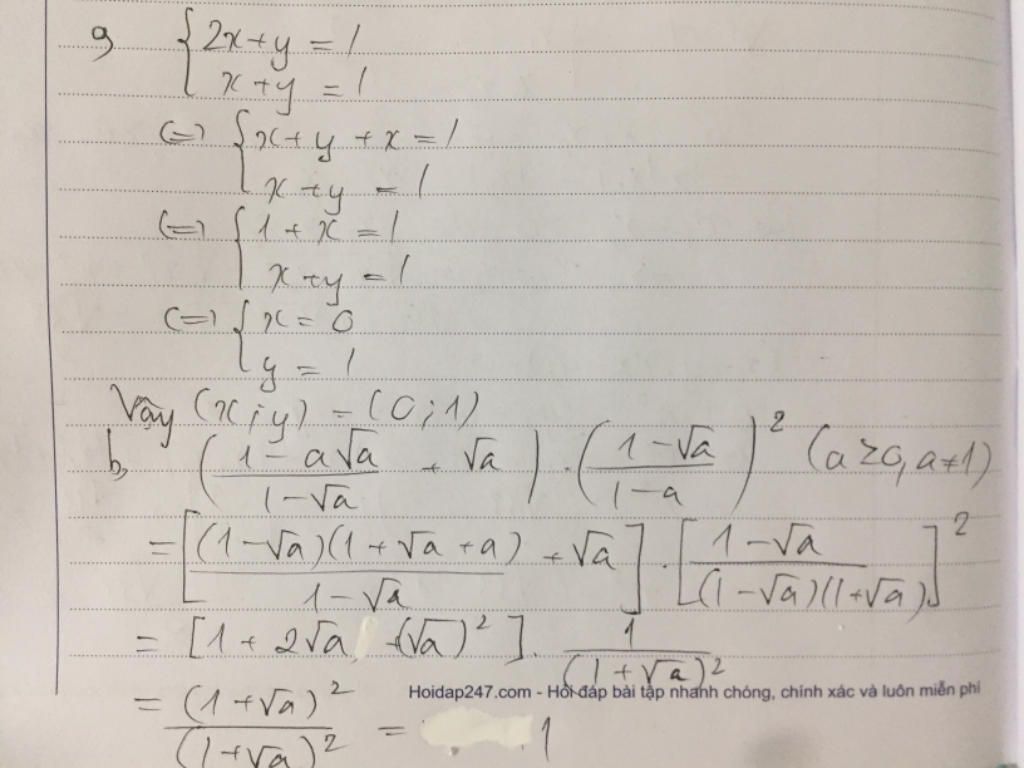 a, { 2x + y = 1
x + y = 1
(=) { x + y + x = 1
x + y = 1
(=) { 1 + x = 1
x + y = 1
(=) { x = 0
y = 1
Vậy (x ; y) = (0 ; 1)
b, ( (1 - a√a)/(1 - √a) + √a ) . ( (1 - √a)/(1 - a) )² (a ≥ 0, a ≠ 1)
= [ ((1 - √a)(1 + √a + a))/(1 - √a) + √a ] . [ (1 - √a)/((1 - √a)(1 + √a)) ]²
= [1 + 2√a + (√a)²] . 1/(1 + √a)²
Hoidap247.com - Hỏi đáp bài tập nhanh chóng, chính xác và luôn miễn phí
= (1 + √a)²/(1 + √a)² = 1